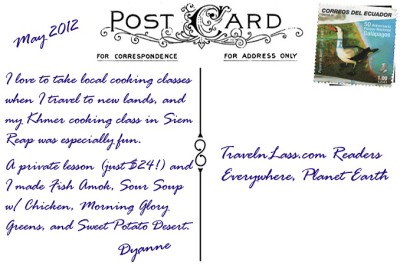 May 2012
POST CARD
FOR CORRESPONDENCE
FOR ADDRESS ONLY
CORREOS DEL ECUADOR
50 Aniversario
Galápagos
1.00
I love to take local cooking classes
when I travel to new lands, and
my Khmer cooking class in Siem
Reap was especially fun.
A private lesson (just $24!) and
I made Fish Amok, Sour Soup
w/ Chicken, Morning Glory
Greens, and Sweet Potato Desert.
Dyanne
TravelnLass.com Readers
Everywhere, Planet Earth